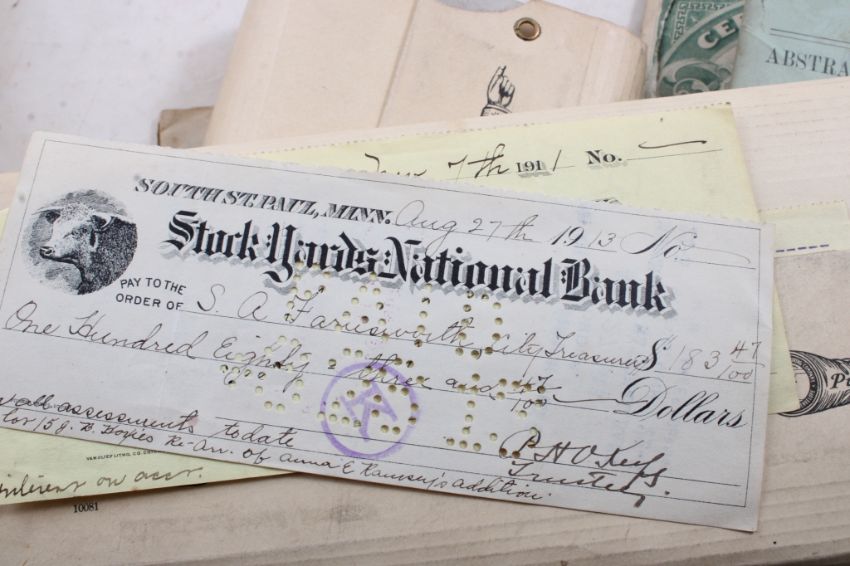 ABSTRA
7th 1911 No.
SOUTH ST. PAUL, MINN. Aug 27th 1913 No.
Stock Yards National Bank
PAY TO THE ORDER OF S. A. Farnsworth, City Treasurer $183 47/100
One Hundred Eighty-three and 47/100 Dollars
all assessments to date
lor 15 J. N. Re-Arr. of Anna E Ramsey's addition.
Trustee,
on acc.
10081